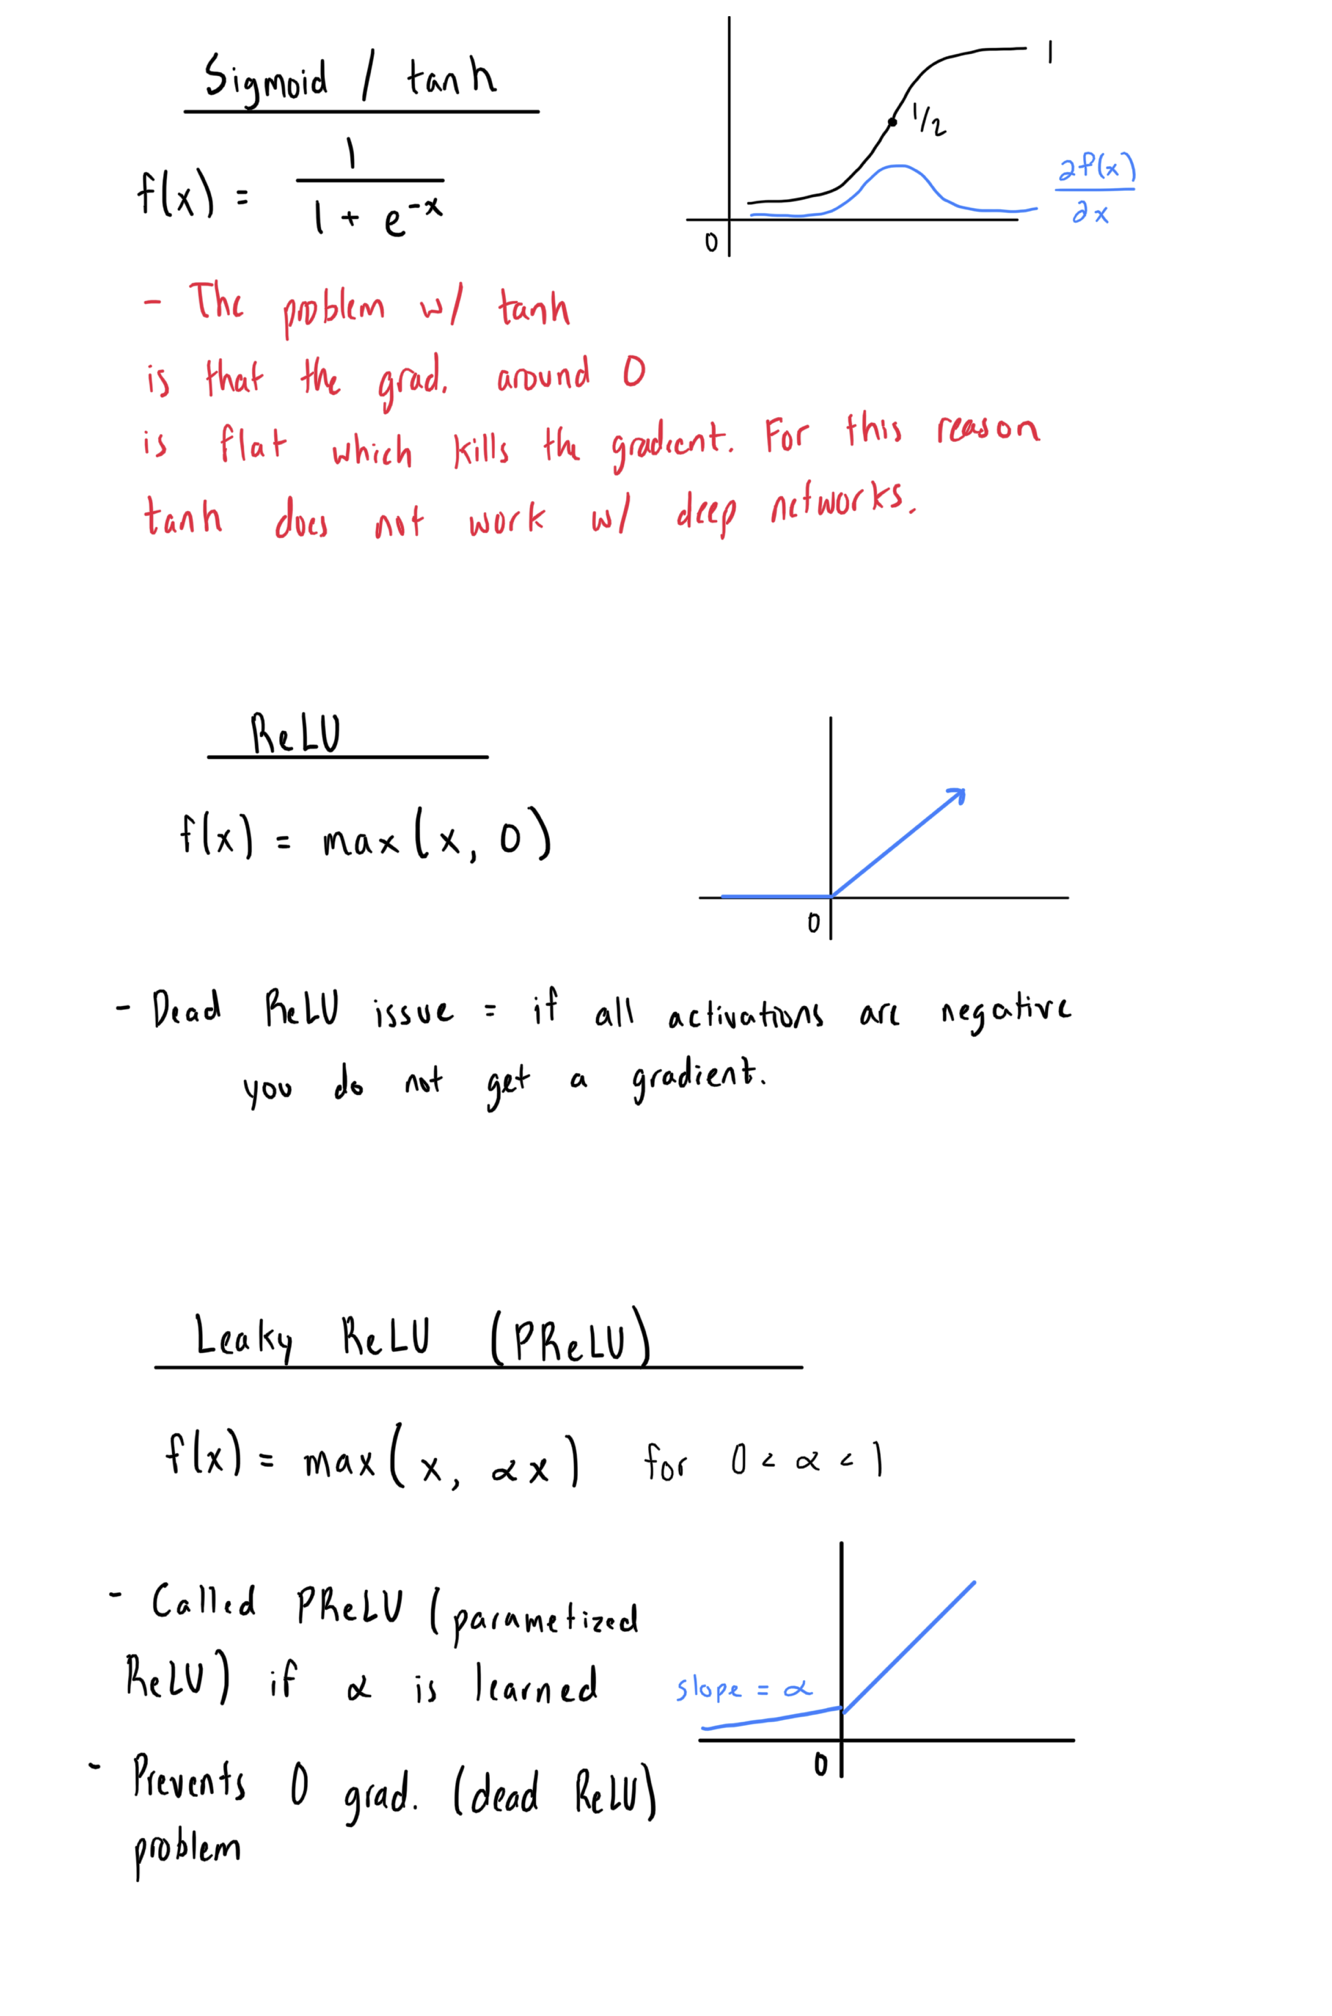 Sigmoid / tanh
f(x) = 1 / (1 + e^-x)
1
1/2
∂f(x) / ∂x
0
- The problem w/ tanh
is that the grad. around 0
is flat which kills the gradient. For this reason
tanh does not work w/ deep networks.
ReLU
f(x) = max(x, 0)
0
- Dead ReLU issue = if all activations are negative
you do not get a gradient.
Leaky ReLU (PReLU)
f(x) = max(x, αx) for 0 < α < 1
- Called PReLU (parametized
ReLU) if α is learned
slope = α
0
- Prevents 0 grad. (dead ReLU)
problem